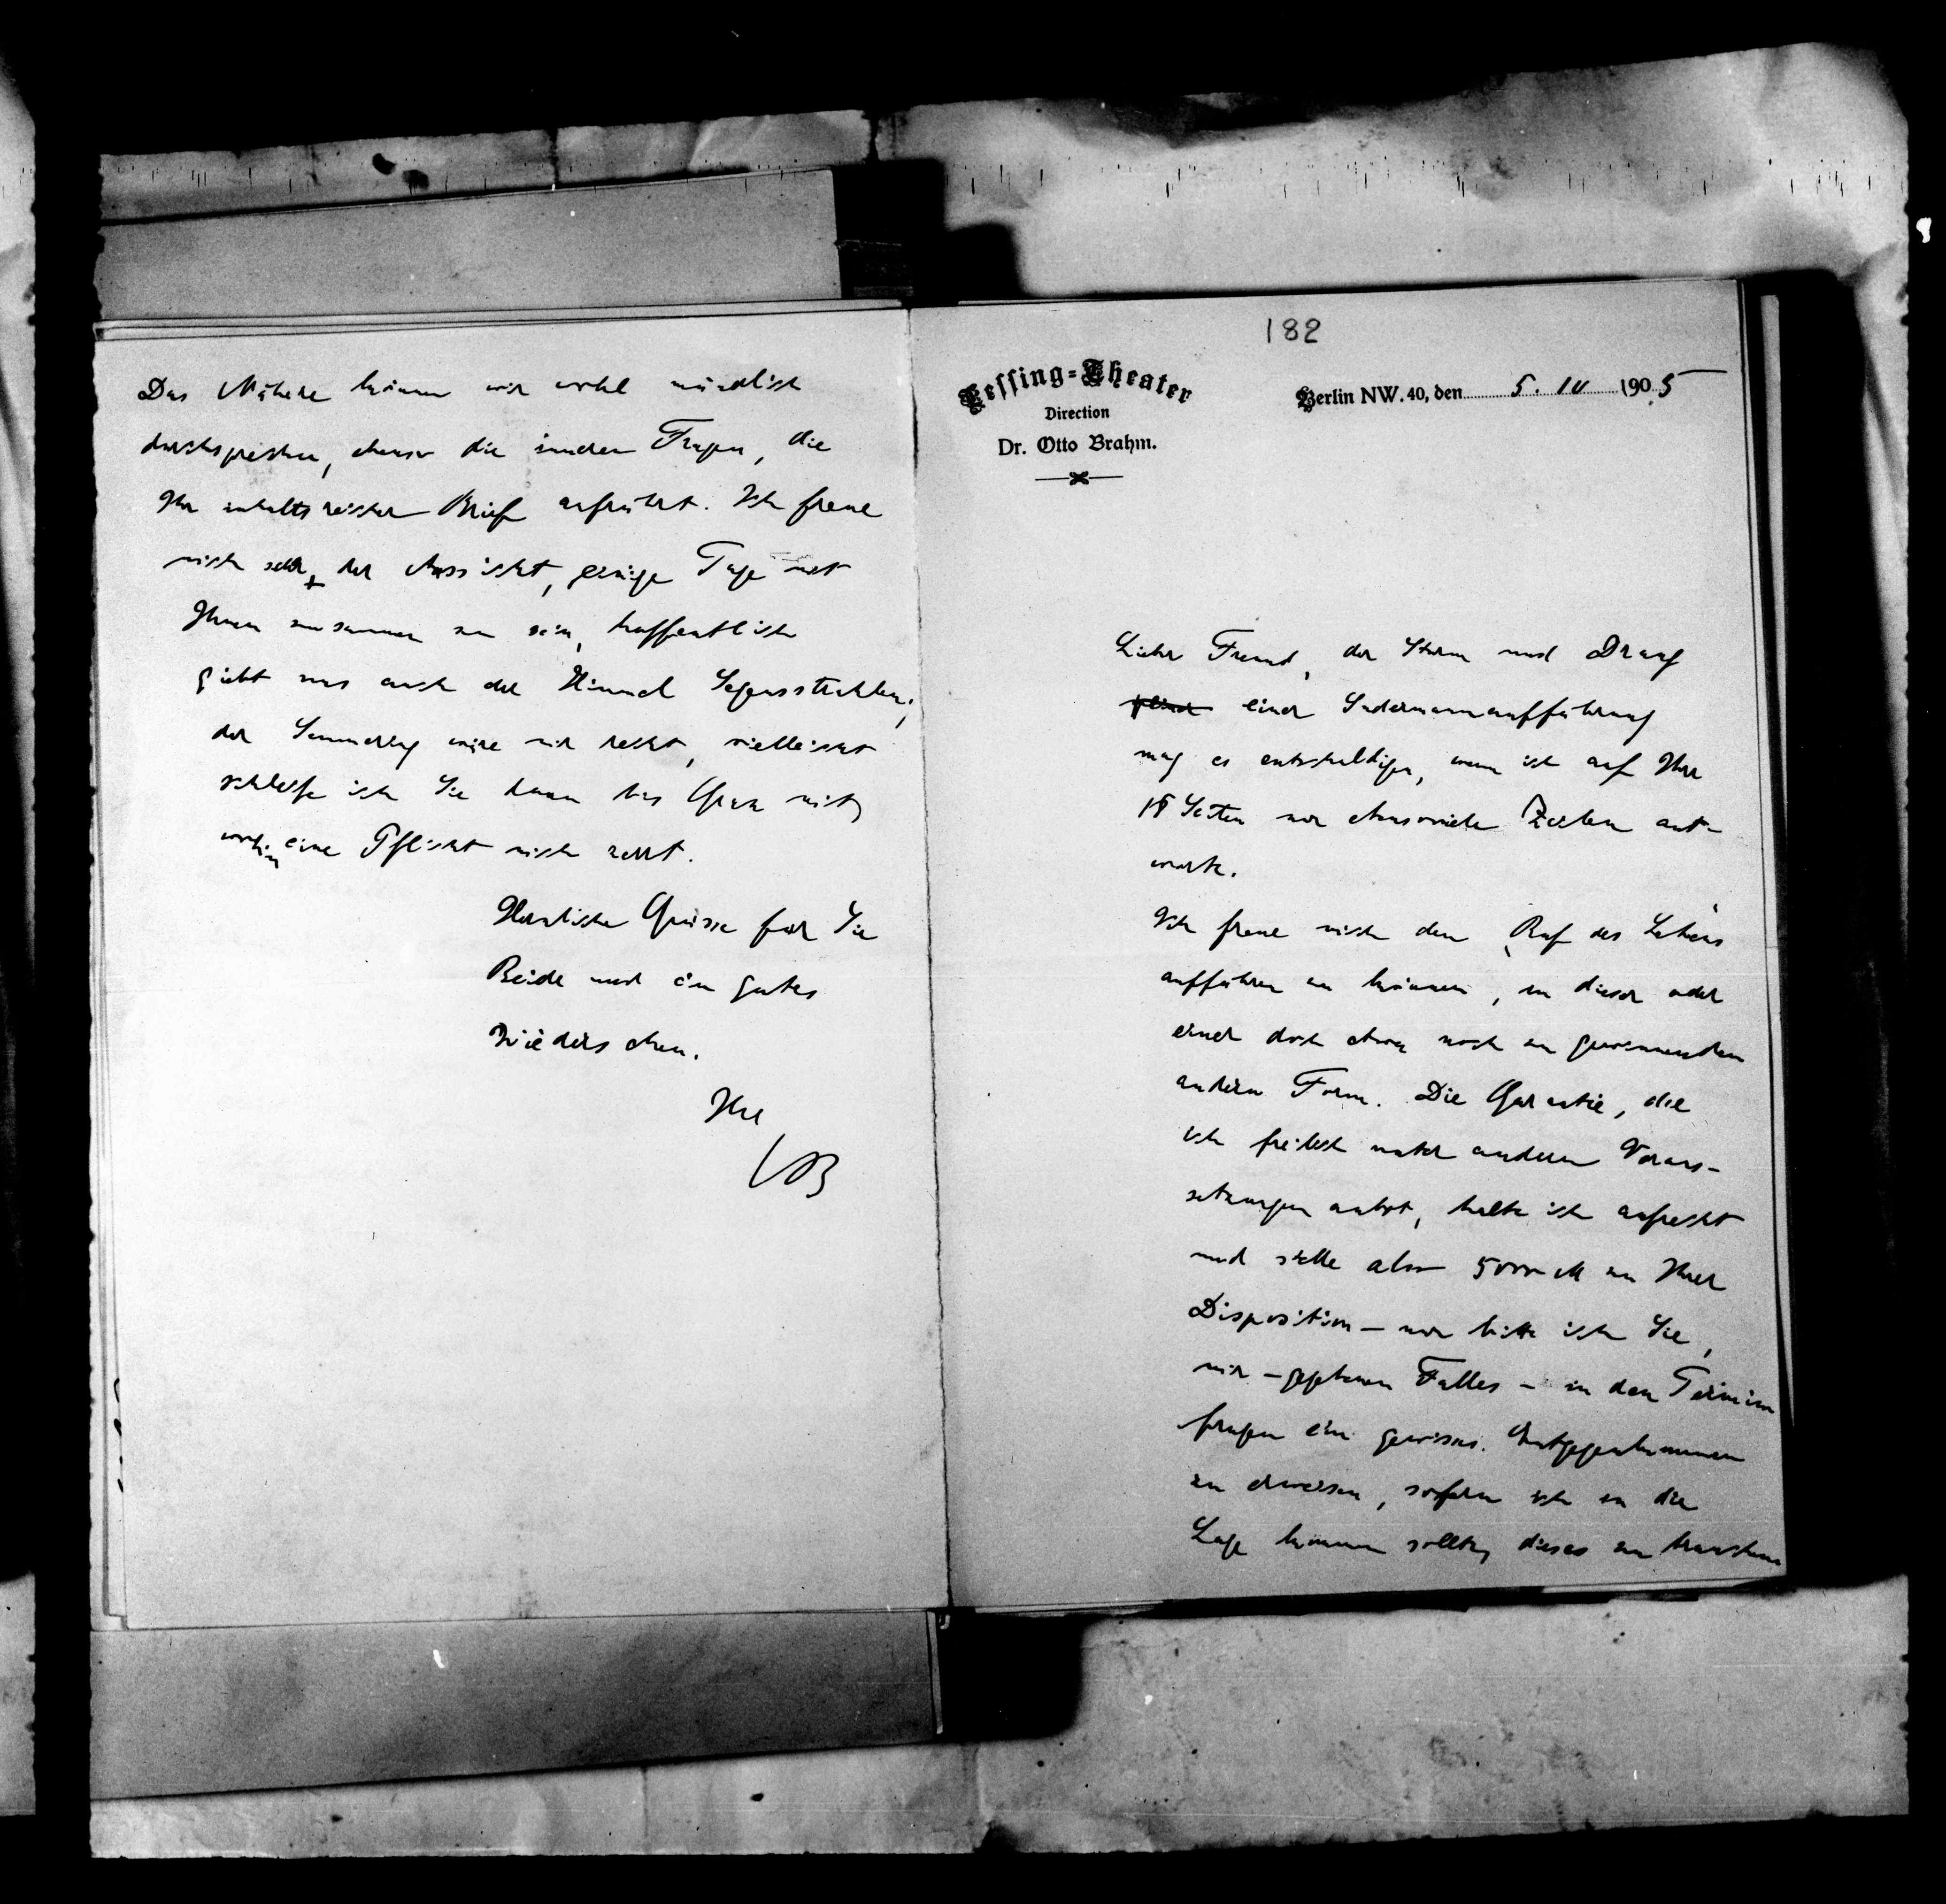 Das Nähere können wir wohl mündlich
durchsprechen, ebenso die anderen Fragen, die
Ihr inhaltsreicher Brief aufrührt. Ich freue
mich sehr der Aussicht, einige Tage mit
Ihnen zusammen zu sein, hoffentlich
giebt uns auch der Himmel Segensstrahlen;
der Semmering wäre mir recht, vielleicht
schleife ich Sie dann bis Graz mit,
wohin eine Pflicht mich zerrt.
Herzliche Grüsse für Sie
Beide und ein gutes
Wiedersehen.
Ihr
OB
182
Lessing-Theater
Direction
Dr. Otto Brahm.
Berlin NW. 40, den 5. 10 1905
Lieber Freund, der Sturm und Drang
einer Sudermannaufführung
mag es entschuldigen, wenn ich auf Ihre
Seiten nur ebensoviele Zeilen ant-
worte.
Ich freue mich den Ruf des Lebens
aufführen zu können, in dieser oder
einer doch etwa noch zu gewinnenden
andern Form. Die Garantie, die
ich freilich unter anderen Voraus-
setzungen anbot, halte ich aufrecht
und stelle also 5000 M zu Ihrer
Disposition – nur bitte ich Sie,
mir – gegebenen Falles – in den Termin
fragen ein gewisses Entgegenkommen
zu erweisen, sofern ich in die
Lage kommen sollte, dieses zu brauchen